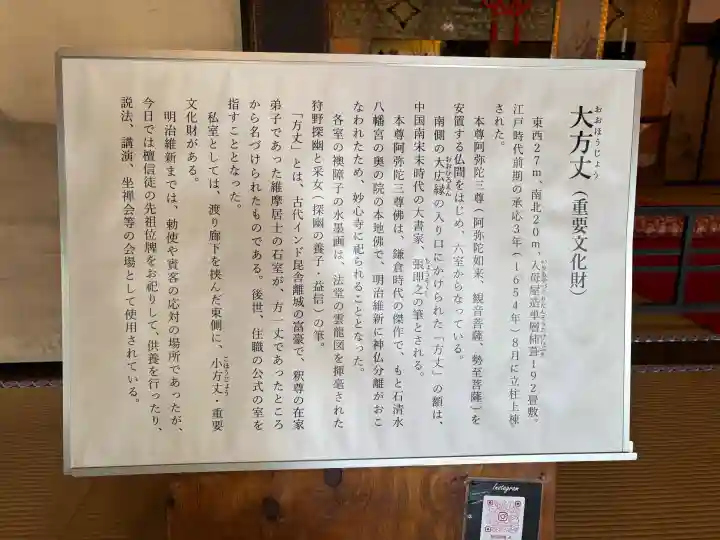 大方丈(重要文化財)
おおほうじょう
東西27m、南北20m、入母屋造単層杮葺192畳敷。
江戸時代前期の承応3年(1654年)8月に立柱上棟
された。
本尊阿弥陀三尊(阿弥陀如来、観音菩薩、勢至菩薩)を
安置する仏間をはじめ、六室からなっている。
南側の大広縁の入り口にかけられた「方丈」の額は、
おおひろえん
中国南宋末時代の大書家、張即之の筆とされる。
ちょうそくし
本尊阿弥陀三尊佛は、鎌倉時代の傑作で、もと石清水
八幡宮の奥の院の本地佛で、明治維新に神仏分離がおこ
なわれたため、妙心寺に祀られることとなった。
各室の襖障子の水墨画は、法堂の雲龍図を揮毫された
狩野探幽と采女(探幽の養子・益信)の筆。
「方丈」とは、古代インド毘舎離城の富豪で、釈尊の在家
弟子であった維摩居士の石室が、方一丈であったところ
から名づけられたものである。後世、住職の公式の室を
指すこととなった。
私室としては、渡り廊下を挟んだ東側に、小方丈・重要
こほうじょう
文化財がある。
明治維新までは、勅使や賓客の応対の場所であったが、
今日では檀信徒の先祖位牌をお祀りして、供養を行ったり、
説法、講演、坐禅会等の会場として使用されている。
Instagram